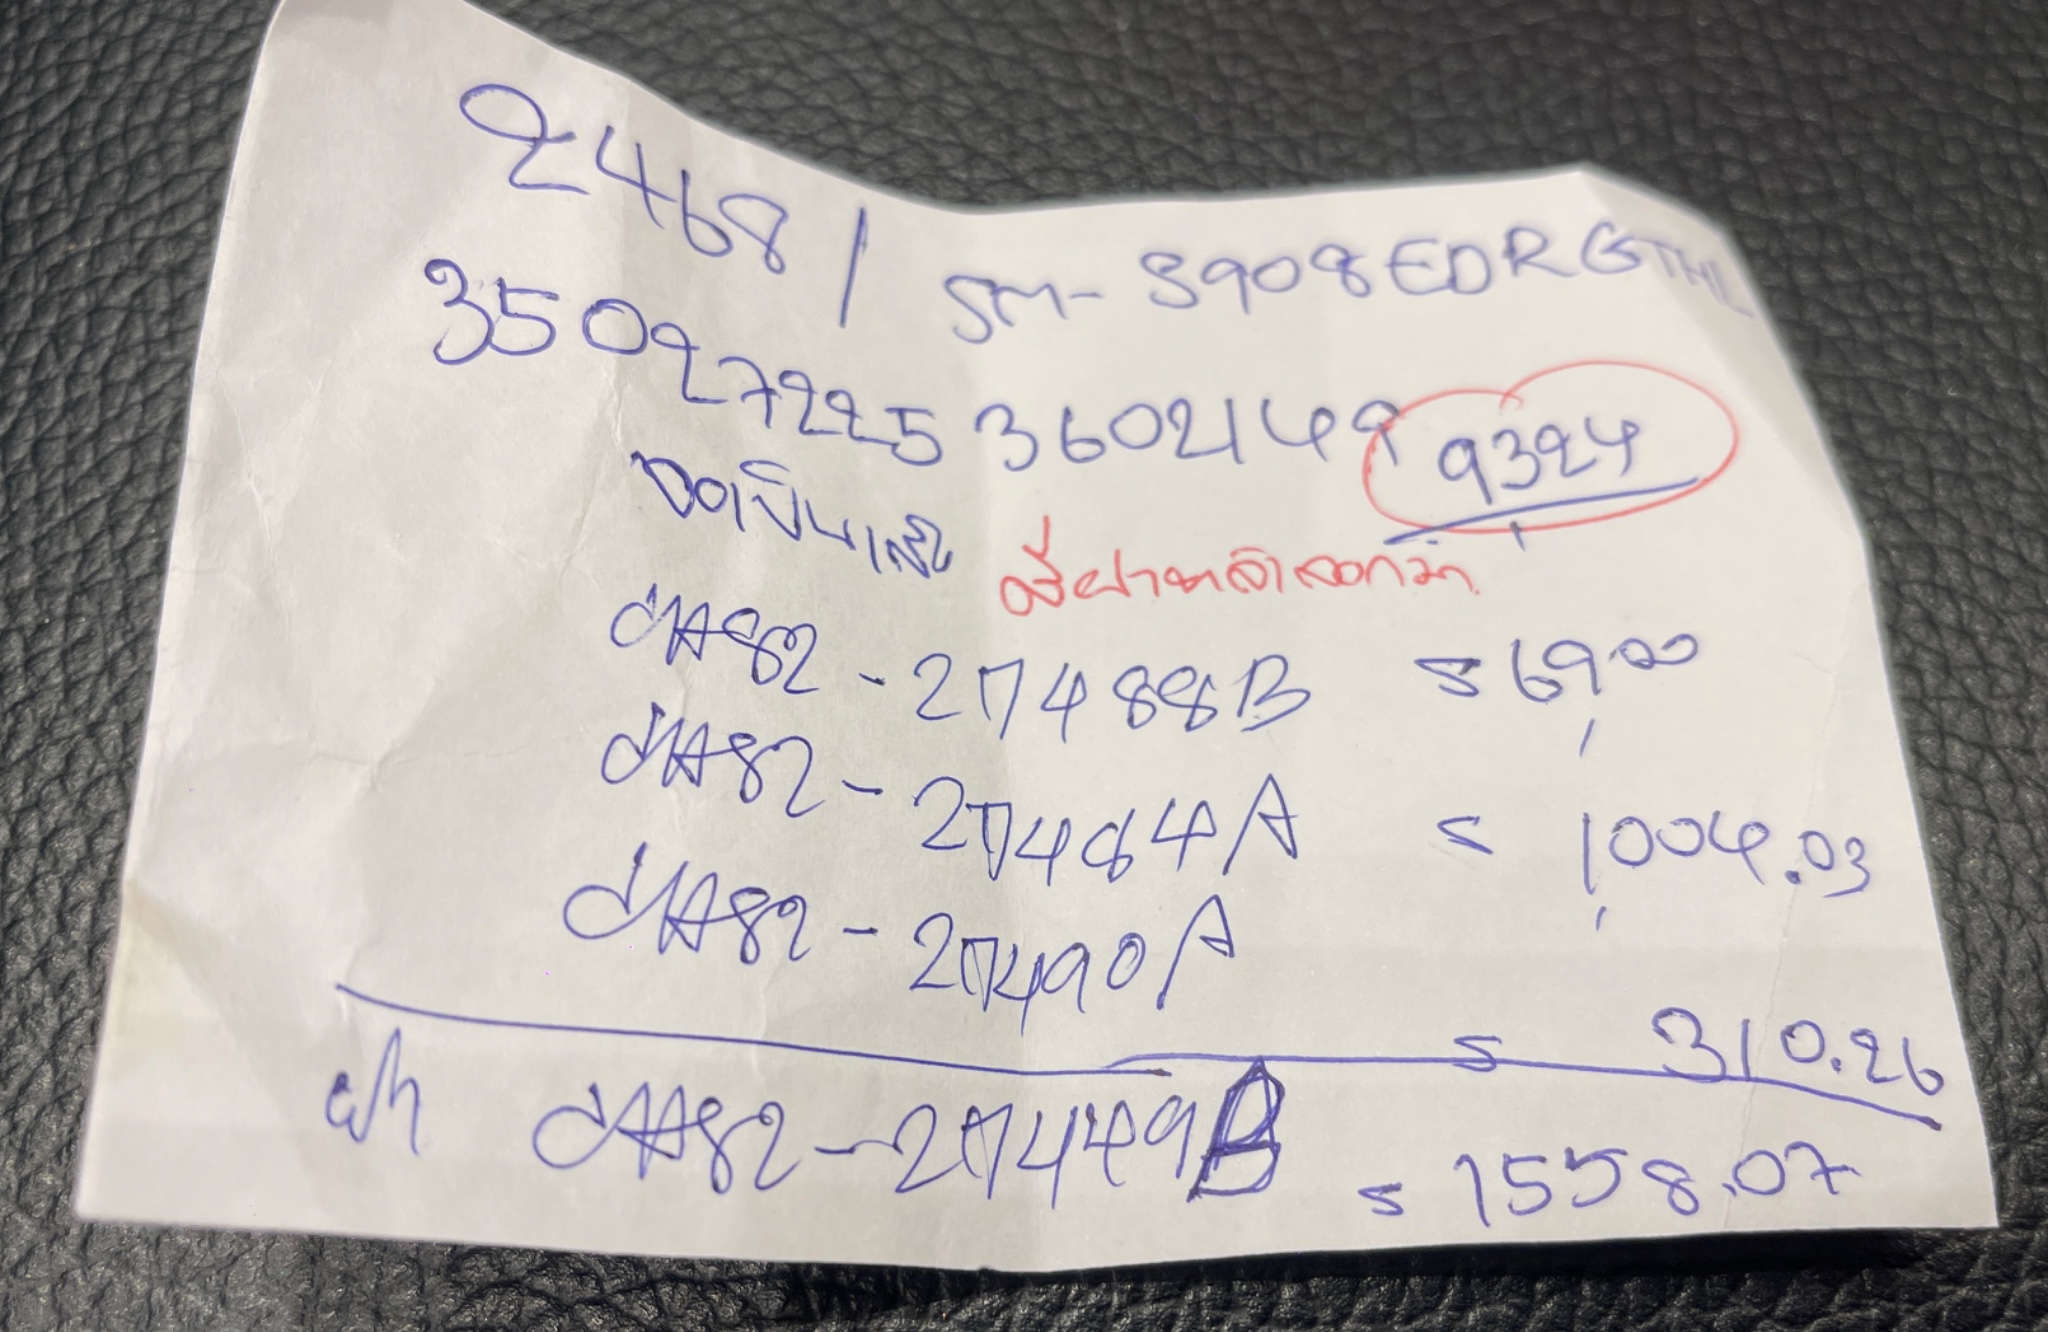 24681 SM-S908EDRGTHL
350272253602149 9324
จอเป็นเส้น มีฝาหลังลอกมา
GH82-27488B = 6900
GH82-27484A = 1004.03
GH82-27490A = 310.26
ฝา GH82-27449B = 1558.07